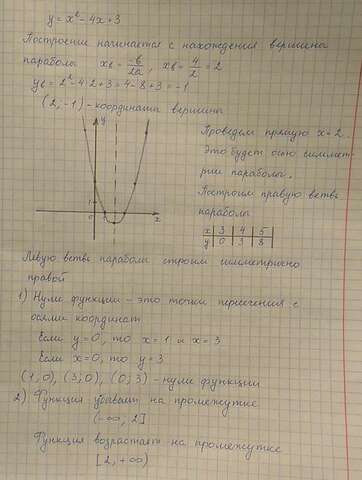 y = x² - 4x + 3
Построение начинается с нахождения вершины
параболы xв = -b/2a, xв = 4/2 = 2
yв = 2² - 4·2 + 3 = 4 - 8 + 3 = -1
(2, -1) - координаты вершины
y
1
0
1
x
Проведем прямую x = 2.
Это будет осью симмет-
рии параболы.
Построим правую ветвь
параболы
x | 3 | 4 | 5
y | 0 | 3 | 8
Левую ветвь параболы строим симметрично
правой
1) Нули функции - это точки пересечения с
осями координат
Если y = 0, то x = 1 и x = 3
Если x = 0, то y = 3
(1, 0), (3; 0), (0; 3) - нули функции
2) Функция убывает на промежутке
(-∞, 2]
Функция возрастает на промежутке
[2, +∞)